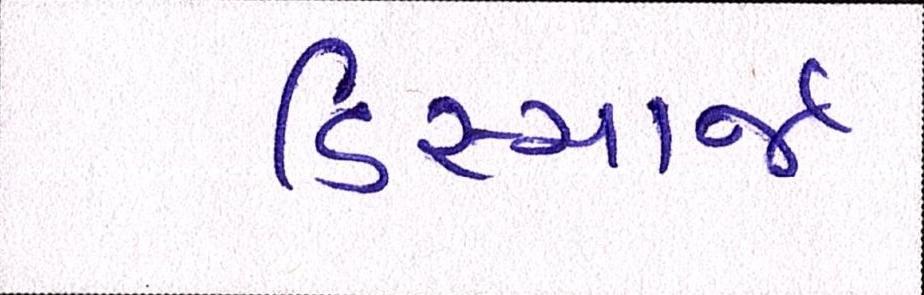 ડિસ્ચાર્જ